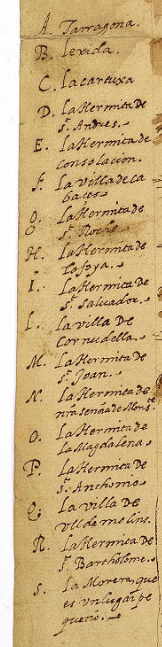 A. Tarragona.
B. Levida.
C. La cartuxa
D. La Hermita de
S.^t Andres.
E. La Hermita de
consolacion.
F. La Villa de ca
baces
G. La Hermita de
S.^t Roch
H. La Hermita de
I. La Hermita de
S.^t Salvador.
L. La villa De
Cornudella.
M. La Hermita de
S.^t Joan.
N. La Hermita de
nra señora de Mons^t
O. La Hermita de
la Magdalena
P. La Hermita de
S.^t Anthonio
Q. La villa de
Vlldemolins.
R. La Hermita de
S.^t Bartholome.
S. La Morera, que
es vn lugar pe
queño.